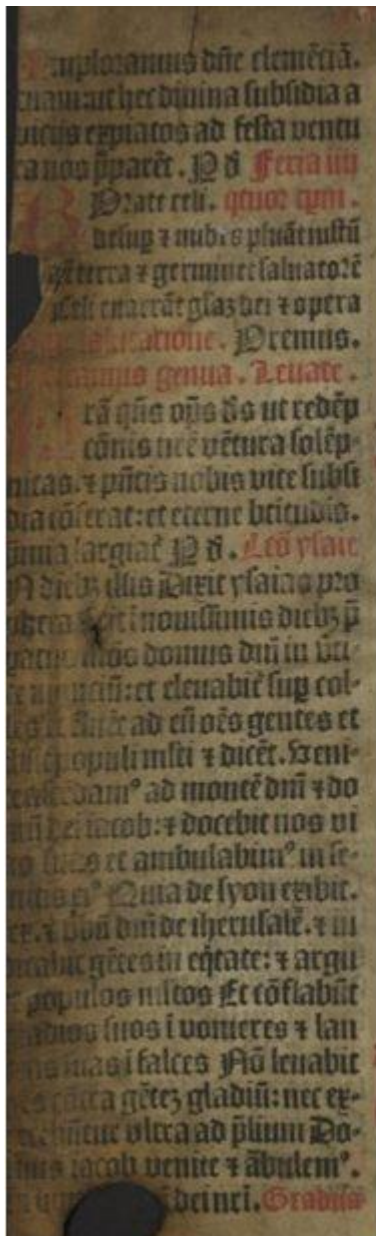 mploramus dñe clemẽciã.
tuam: ut hec divina subsidia a
vicijs expiatos ad festa ventu
ra nos p̃parẽt. P d̃ Feria iiij
Orate celi. q̃tuor tpm.
desup ⁊ nubes pluãt iustũ
terra ⁊ germinet salvatorẽ
Celi enarrãt gl̃aꝫ dei ⁊ opera
Oremus.
genua. Levate.
rã q̃s om̃ps d̃s ut redẽp
cõnis nr̃e vẽtura solẽp-
nitas. ⁊ p̃ntis nobis vite subsi
dia cõferat: et eterne bt̃itudis.
p̃mia largiat̃ P d̃. Lc̃õ ysaie
N diebꝫ illis Dixit ysaias pro
pheta novissimis diebꝫ p̃
mõs domus dñi in v̾ti-
ce mõciũ: et elevabit̃ sup col-
les et ad eũ oẽs gentes et
populi ml̃ti ⁊ dicẽt. Veni-
ascẽdamꝰ ad montẽ dñi ⁊ do
mũ dei iacob: ⁊ docebit nos vi
as suas et ambulabimꝰ in se-
mitis eiꝰ Quia de syon exibit.
lex. ⁊ v̾bũ dñi de iherusalẽ. ⁊ iu
dicabit gẽtes in eq̃tate: ⁊ argu
et populos ml̃tos Et cõflabũt
gladios suos ĩ vomeres ⁊ lan
ceas suas ĩ falces Nõ levabit
gẽs cõtra gẽteꝫ gladiũ: nec ex-
ultra ad p̃lium Do-
mus iacob venite ⁊ ãbulemꝰ.
dei nr̃i. Gradus